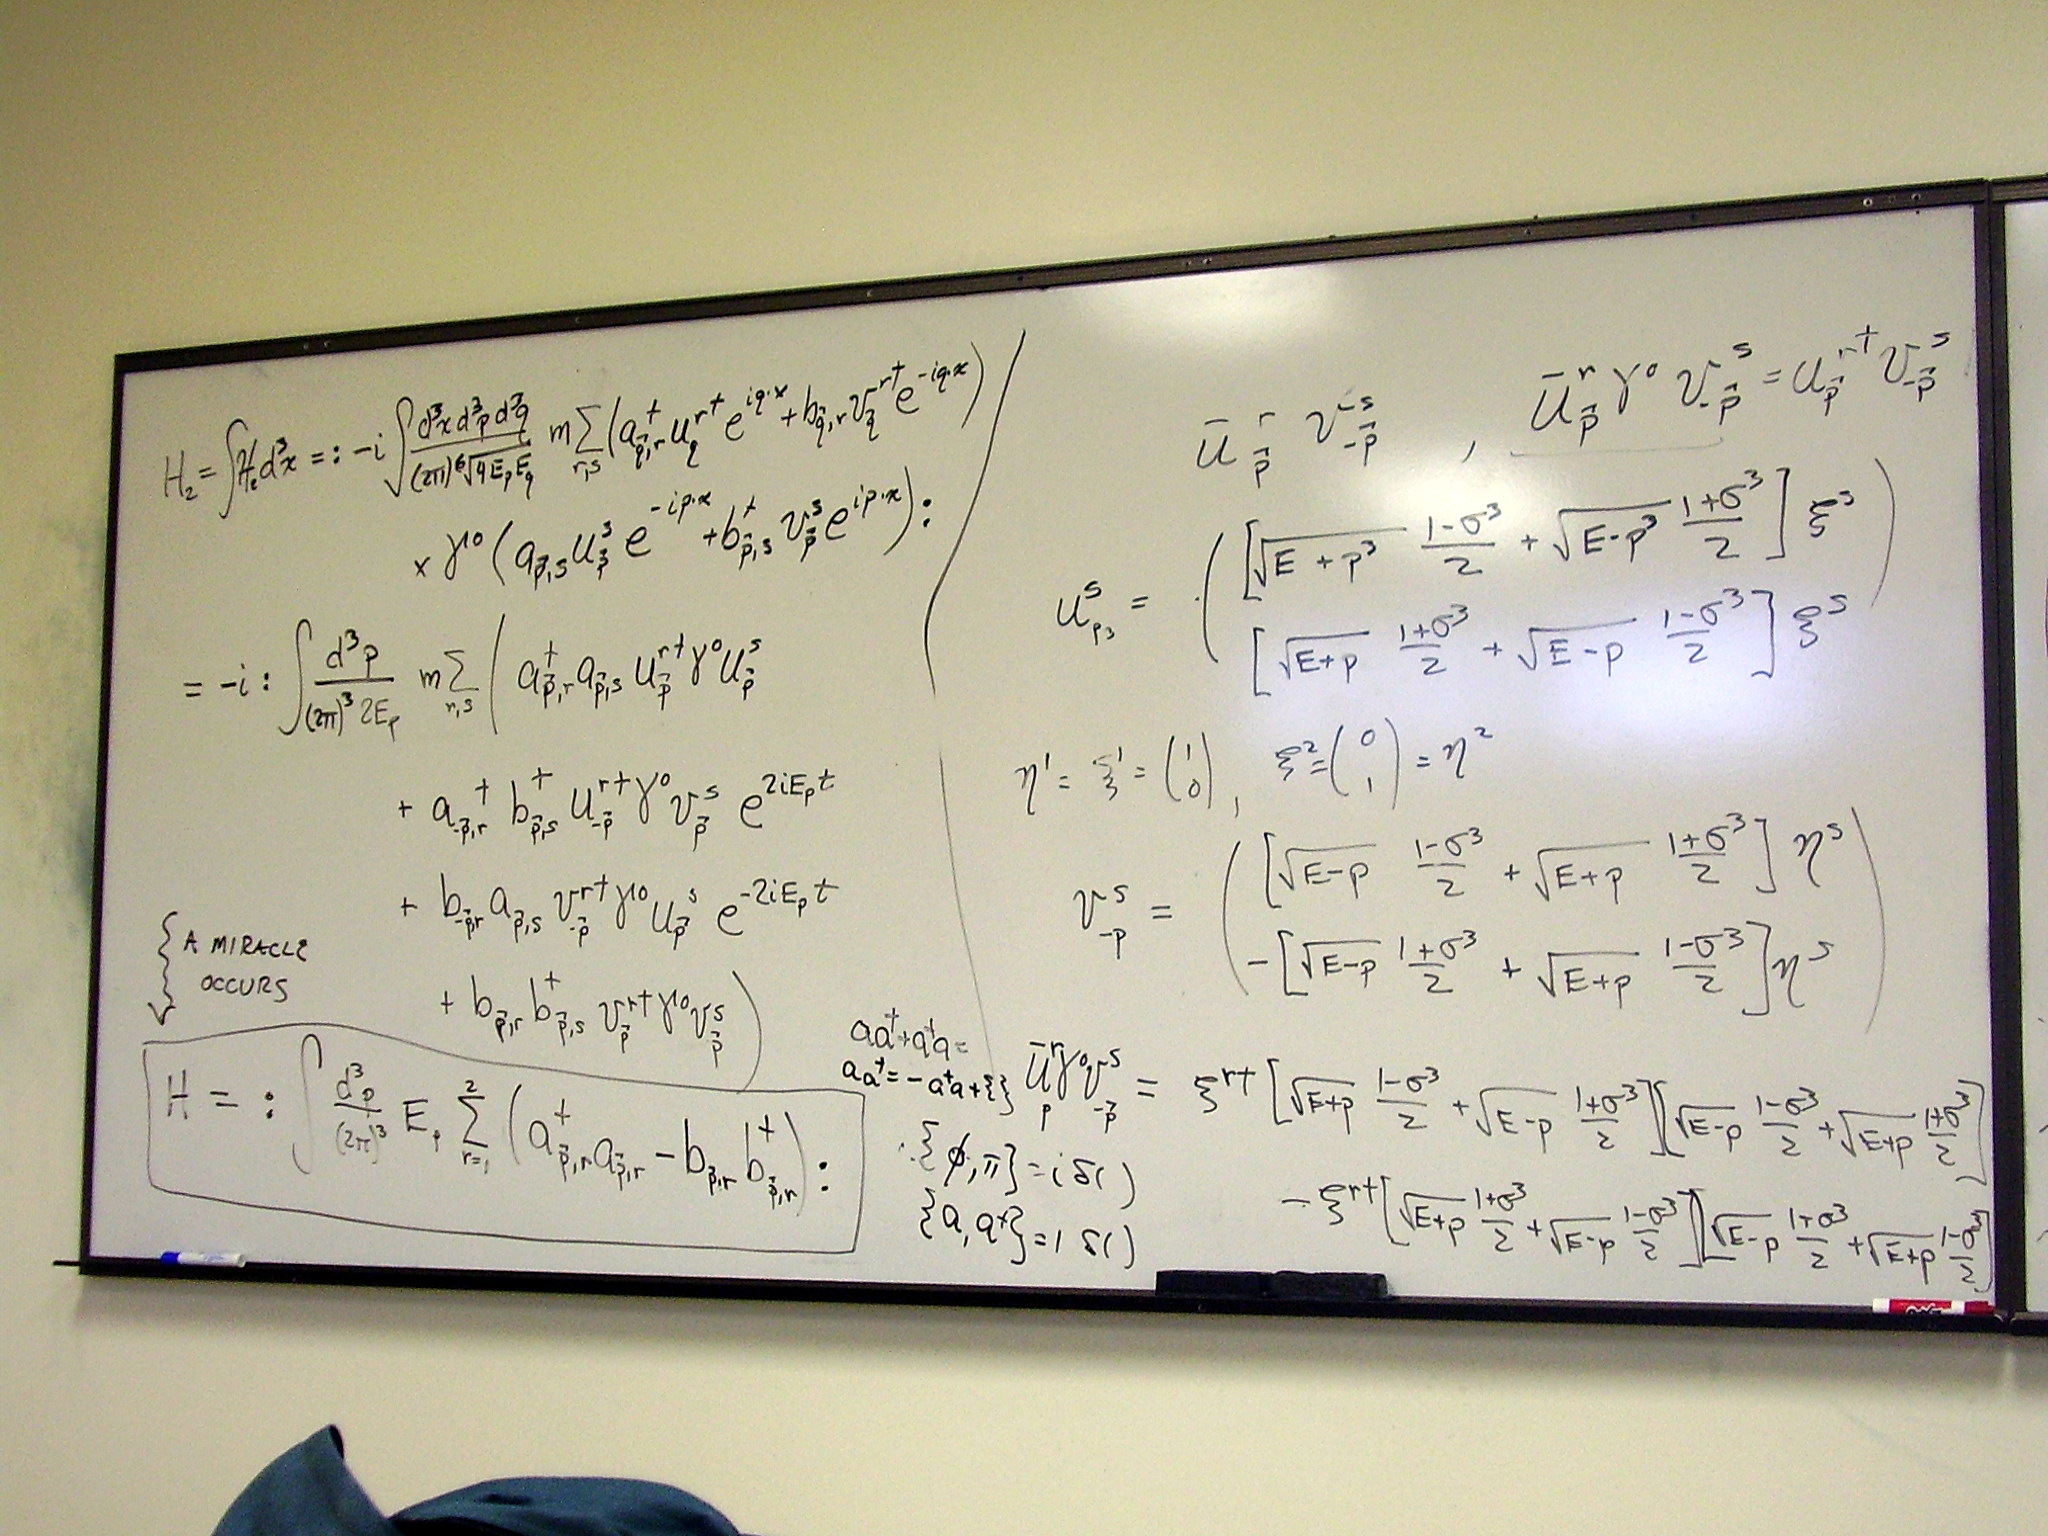 H₂ = ∫ℋ₂d³x = : -i ∫ d³x d³p d³q / (2π)⁶√(4E_pE_q) m Σ_{r,s} (a†_{q⃗,r} u_q^{r†} e^{iq·x} + b_{q⃗,r} v_{q⃗}^{r†} e^{-iq·x})
× γ⁰ (a_{p⃗,s} u_{p⃗}^s e^{-ip·x} + b†_{p⃗,s} v_{p⃗}^s e^{ip·x}) :
= -i : ∫ d³p / (2π)³2E_p m Σ_{r,s} ( a†_{p⃗,r} a_{p⃗,s} u_{p⃗}^{r†} γ⁰ u_{p⃗}^s
+ a†_{-p⃗,r} b†_{p⃗,s} u_{-p⃗}^{r†} γ⁰ v_{p⃗}^s e^{2iE_pt}
+ b_{-p⃗,r} a_{p⃗,s} v_{-p⃗}^{r†} γ⁰ u_{p⃗}^s e^{-2iE_pt}
+ b_{p⃗,r} b†_{p⃗,s} v_{p⃗}^{r†} γ⁰ v_{p⃗}^s )
A MIRACLE
OCCURS
H = : ∫ d³p / (2π)³ E_p Σ_{r=1}^{2} (a†_{p⃗,r} a_{p⃗,r} - b_{p⃗,r} b†_{p⃗,r}) :
aa† + a†a =
aa† = -a†a + {}
{φ, π} = i δ( )
{a, a†} = 1 δ( )
ū_{p⃗}^r v_{-p⃗}^s , ū_{p⃗}^r γ⁰ v_{-p⃗}^s = u_{p⃗}^{r†} v_{-p⃗}^s
u_{p₃}^s = ( [√(E+p³) (1-σ³)/2 + √(E-p³) (1+σ³)/2] ξ^s
[√(E+p) (1+σ³)/2 + √(E-p) (1-σ³)/2] ξ^s )
η¹ = ξ¹ = (1 0), ξ² = (0 1) = η²
v_{-p}^s = ( [√(E-p) (1-σ³)/2 + √(E+p) (1+σ³)/2] η^s
-[√(E-p) (1+σ³)/2 + √(E+p) (1-σ³)/2] η^s )
ū_p^r γ⁰ v_{-p⃗}^s = ξ^{r†} [√(E+p) (1-σ³)/2 + √(E-p) (1+σ³)/2][√(E-p) (1-σ³)/2 + √(E+p) (1+σ³)/2]
- ξ^{r†} [√(E+p) (1+σ³)/2 + √(E-p) (1-σ³)/2][√(E-p) (1+σ³)/2 + √(E+p) (1-σ³)/2]